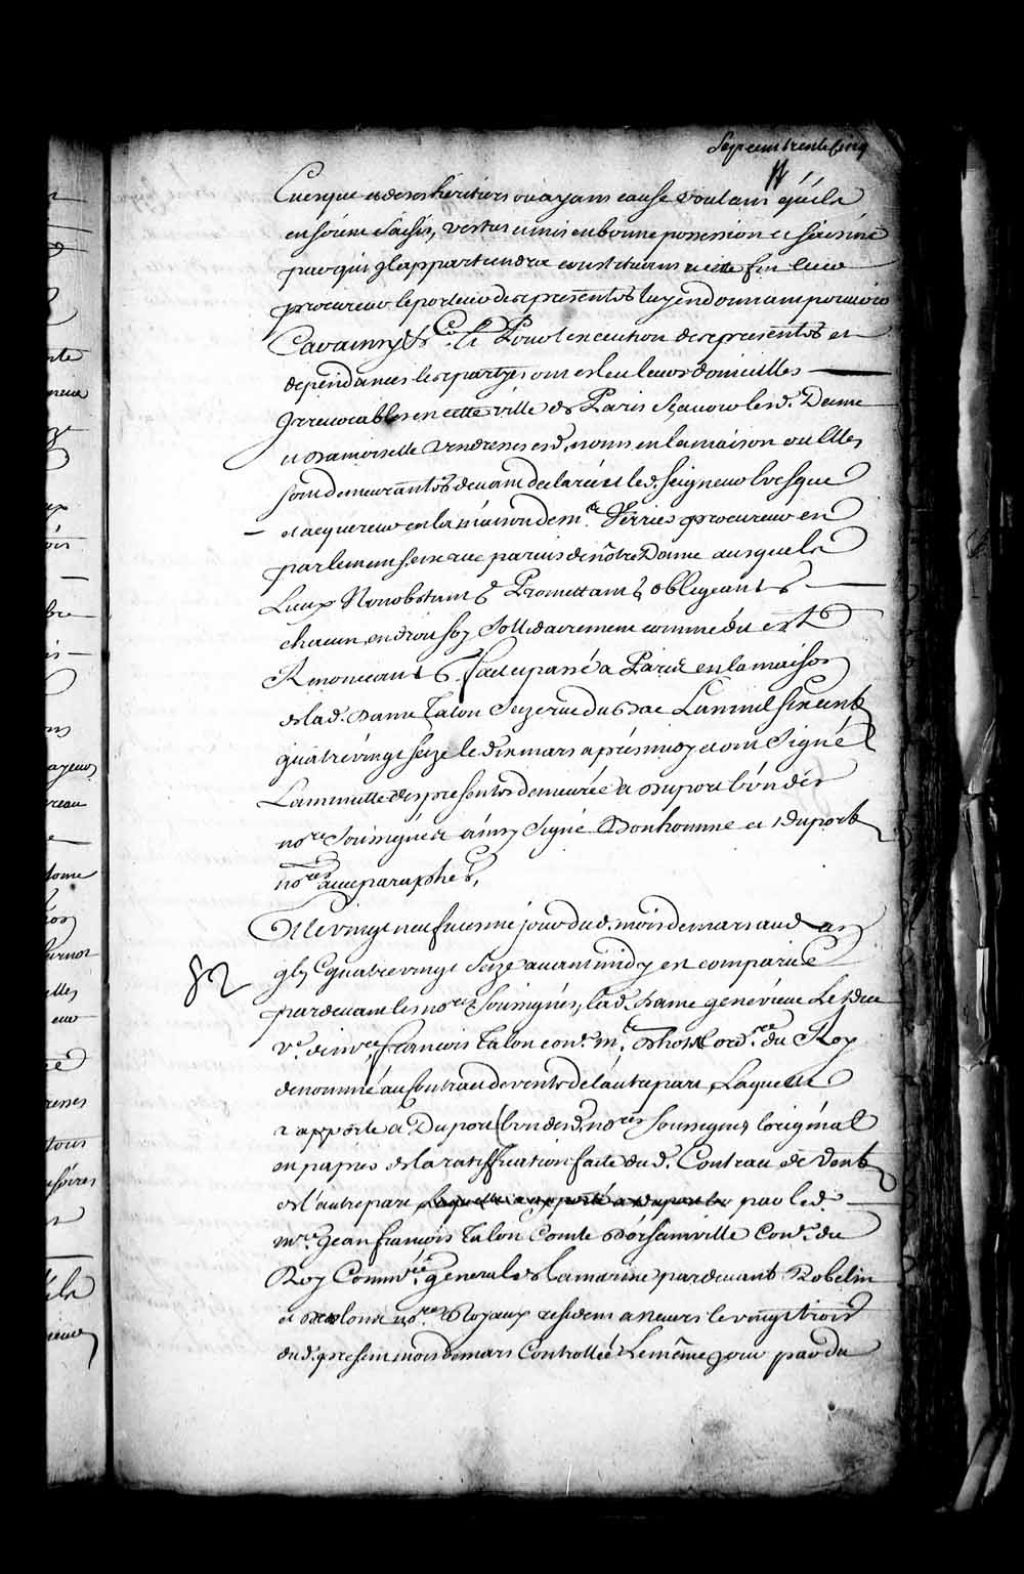 Sept cent trente cinq
Evesque et de ses heritiers ou ayans cause voulans qu'ils
en soient saisis, vestus et mis en bonne possession et saisine
par qui il appartiendra constituans a cette fin leur
procureur le porteur des presentes luy en donnant pouvoir
Car ainsy &c. Pour l'execution des presentes et
dependances lesd partyes ont esleu leurs domicilles
Irrevocables en cette ville de Paris Sçavoir lesd. Dame
et Damoiselle venderesses esd. noms en la maison ou Elles
sont demeurantes devant declarée et led. Seigneur Evesque
et acquereur en la maison de me. Verrier procureur en
parlement seize rue parvis de nôtre Dame ausquels
Lieux Nonobstant &c Promettant &c obligeant &c
chacun endroit soy Sollidairement comme dit est &c
Renonceant &c fait et passé a Paris en la maison
de lad. Dame Talon size rue du Bac L'an mil six cent
quatre vingt seize le dix mars après midy et ont Signé
La minutte des presentes demeurée a Duport l'un des
nores. Soussignés ainsy Signé Bonhomme et Duport
nores. avec paraphes,
82
Et le vingt neufuiesme jour dud. mois de mars aud an
gbj C quatre vingt Seize avant midy est comparüe
pardevant les nores. Soussignés, lad. Dame genevieve Le Duc
ve. de mre. francois Talon coner. me. d'hostel ordre. du Roy
denommé au Contract de vente de l'autre part, Laquelle
a apporté a Duport l'un desd. nores Soussignés l'original
en papier de la ratiffication faite dud. Contract de vente
de l'autre part Laquelle a apporté a Duport par led.
mre. Jean francois Talon Comte Coner. du
Roy Commre. general de la marine pardevant Robelin
et nores. Royaux residens a Nevers le vingt trois
dud. present mois de mars Controllée Le même jour par du